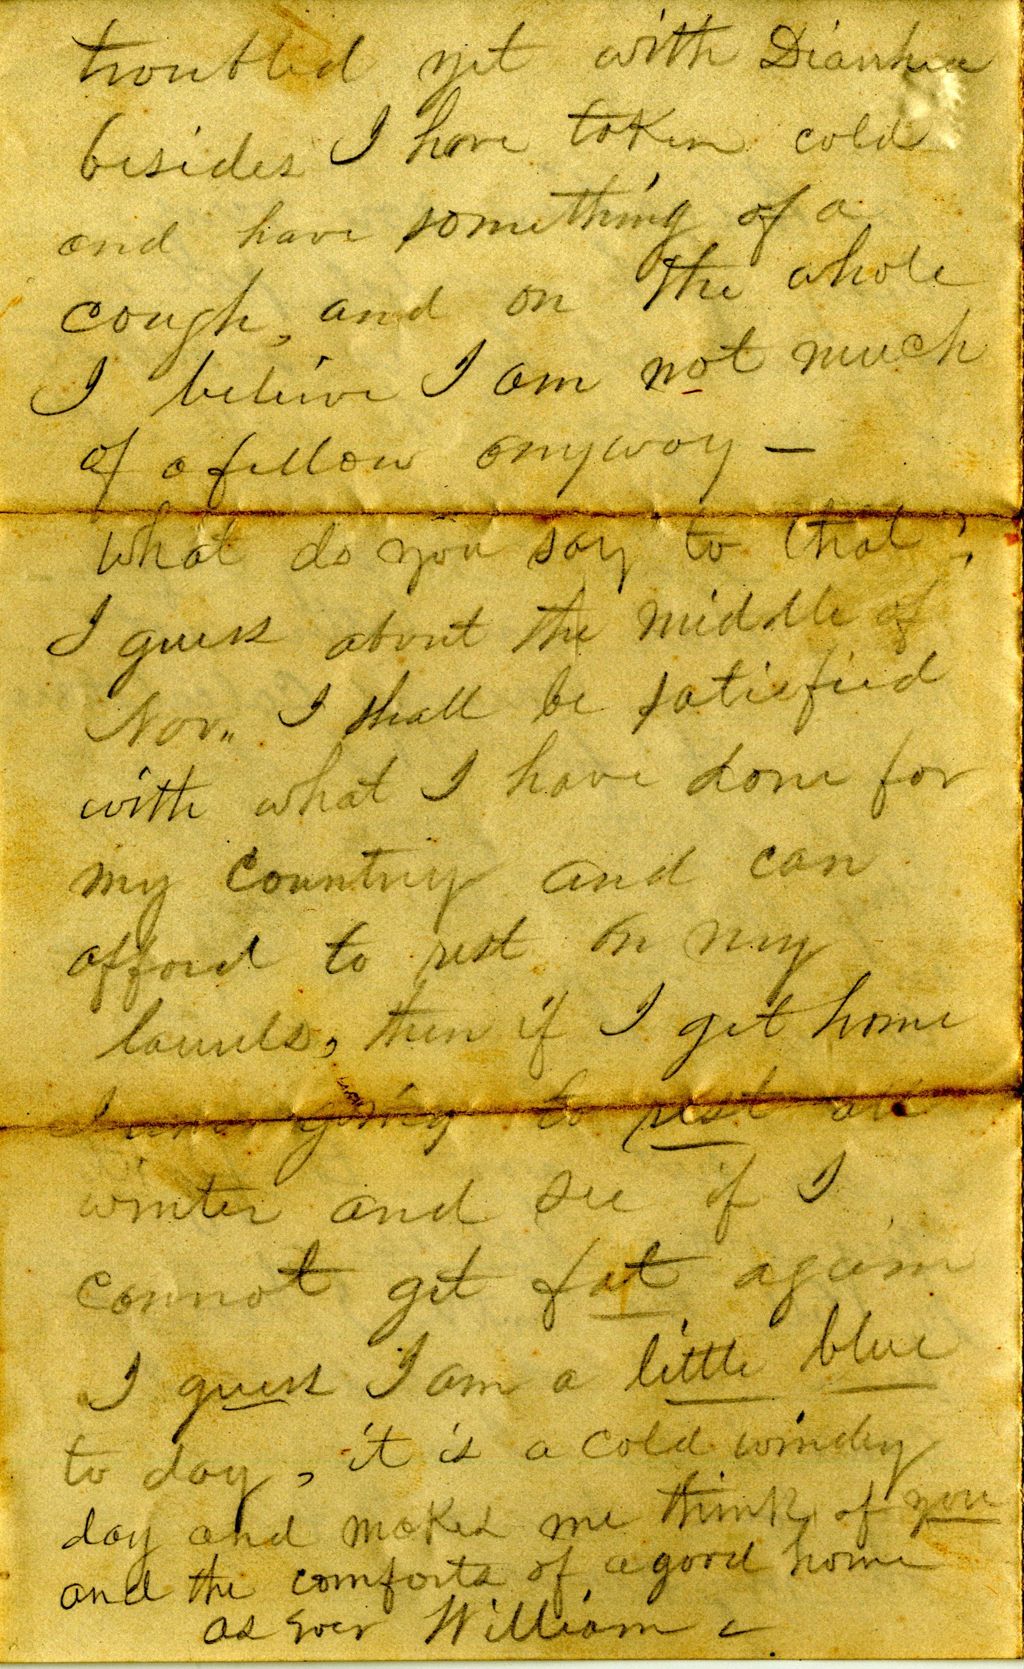 troubled yet with Diarrhea
besides I have taken cold
and have something of a
cough, and on the whole
I believe I am not much
of a fellow anyway —
what do you say to that?
I guess about the middle of
Nov.. I shall be satisfied
with what I have done for
my Country and can
afford to rest on my
laurels, then if I get home
I am going to rest all
winter and see if I
cannot get fat again
I guess I am a little blue
to day, it is a cold windy
day and makes me think of you
and the comforts of a good home
as ever William